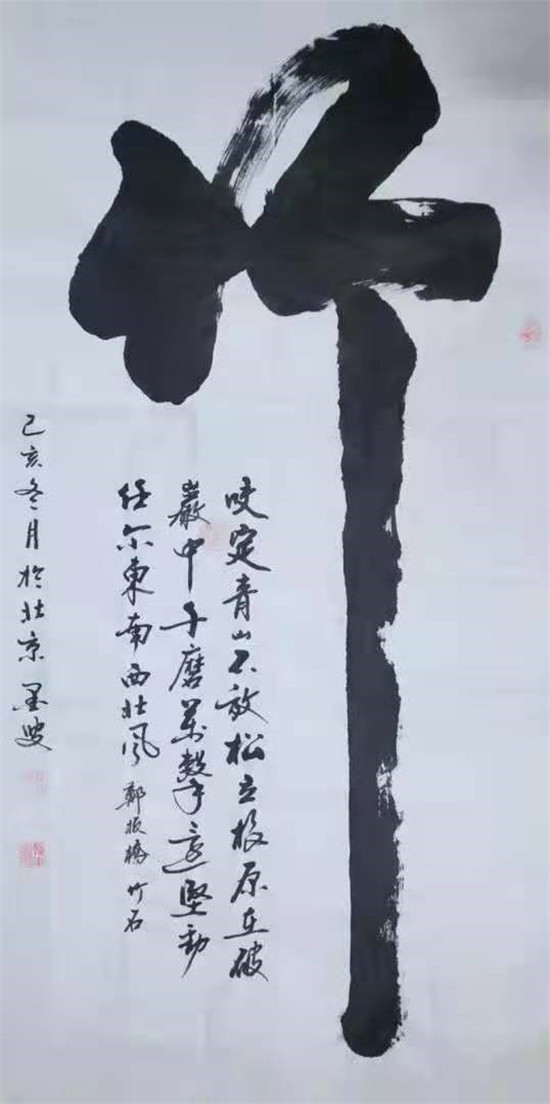 竹
咬定青山不放松立根原在破
巖中千磨萬擊還堅勁
任尔東南西北風 鄭板橋竹石
己亥冬月於北京墨叟